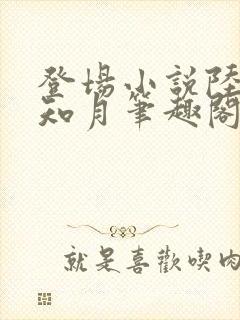 登場小説陸
知月筆趣閣
就是喜歡喫肉